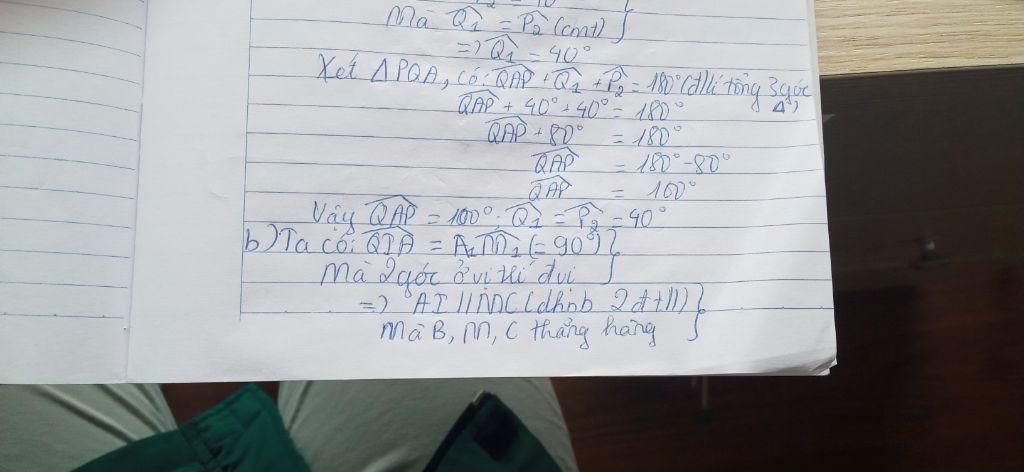 Mà Q̂₁ = P̂₂ (cmt) }
=> Q̂₁ = 40°
Xét ΔPQA, có: QAP + Q̂₁ + P̂₂ = 180° (đlí tổng 3 góc Δ)
QAP + 40° + 40° = 180°
QAP + 80° = 180°
QAP = 180° - 80°
QAP = 100°
Vậy QAP = 100°. Q̂₁ = P̂₂ = 40°
b) Ta có: QIA = A₁M₁ (= 90°) }
Mà 2 góc ở vị thí đvi }
=> AI // MC (dhnb 2đt //) }
Mà B, M, C thẳng hàng }